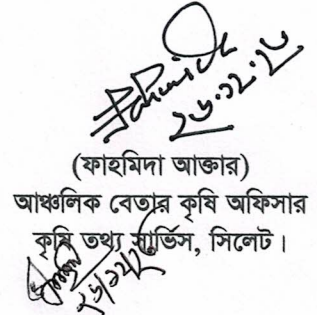 ২৬.১২.২৩
(ফাহমিদা আক্তার)
আঞ্চলিক বেতার কৃষি অফিসার
কৃষি তথ্য সার্ভিস, সিলেট।